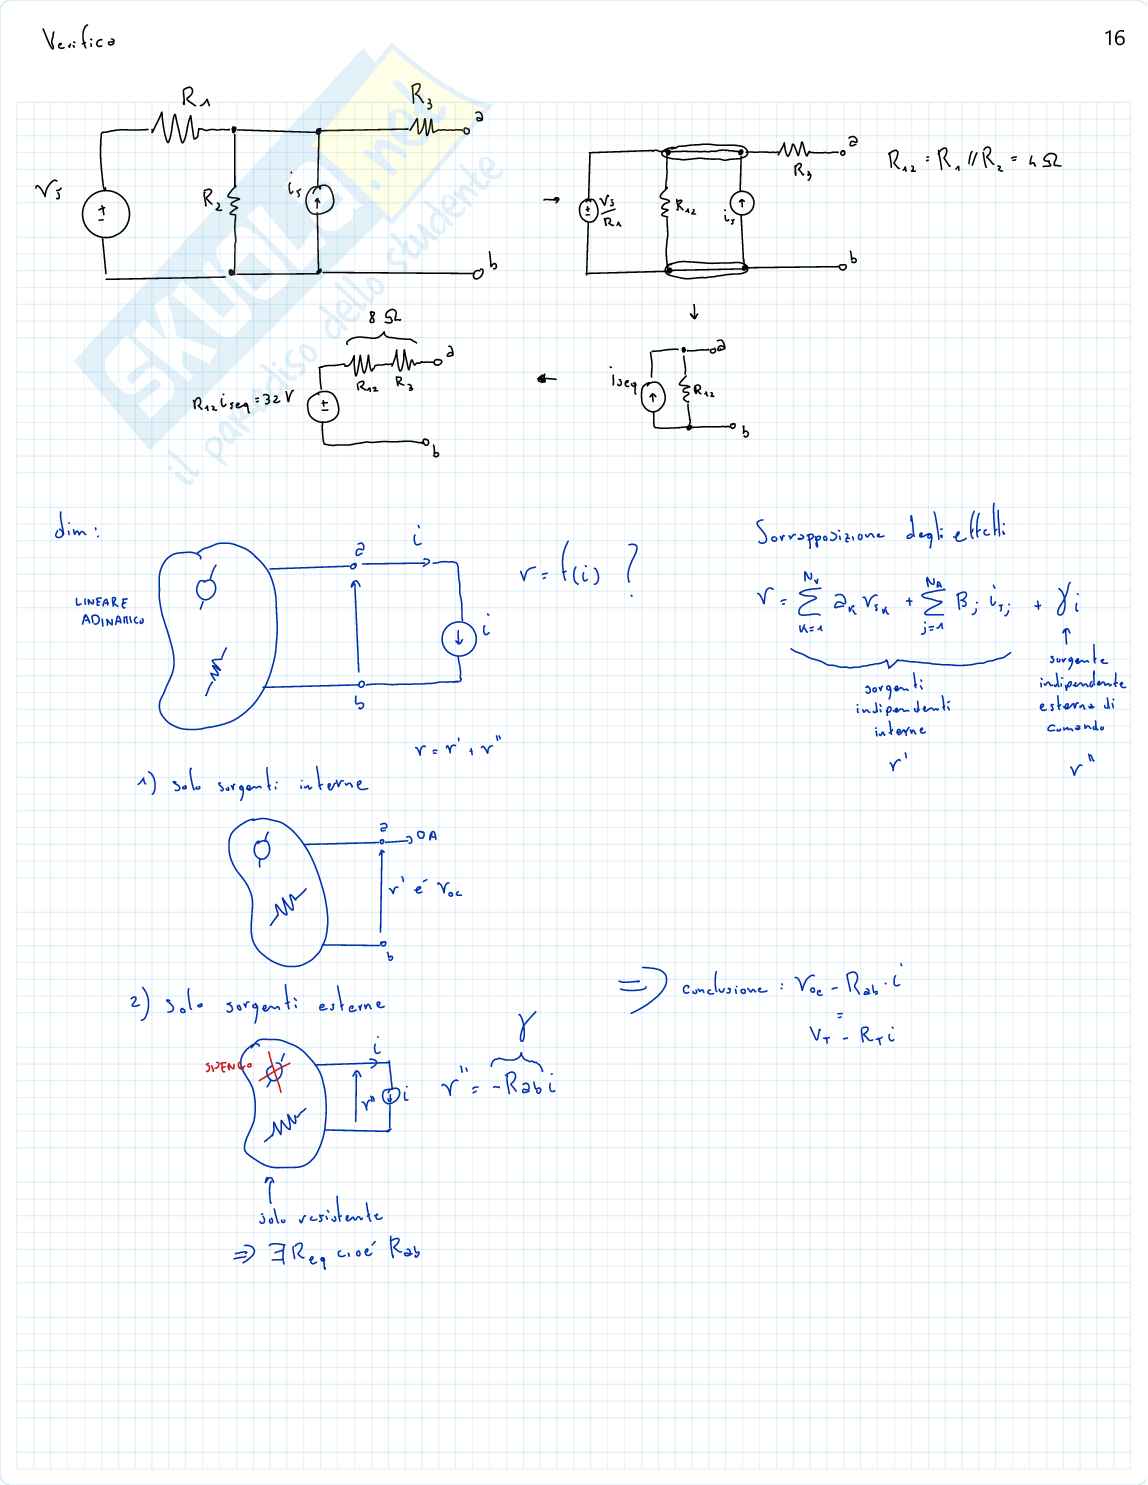 Verifica
16
R1
R3
a
vs
R2
is
b
→
vs/R1
R12
is
R3
a
b
R12 = R1 // R2 = 4 Ω
↓
8 Ω
R12 iseq = 32 V
R12 R3
a
b
←
iseq
R12
a
b
SKUOLA.net
il paradiso dello studente
dim:
LINEARE
ADINAMICO
a
i
i
b
v = f(i) ?
Sovrapposizione degli effetti
v = Σ(k=1, Nv) ak vsk + Σ(j=1, NA) Bj isj + γ i
sorgenti
indipendenti
interne
v'
↑
sorgente
indipendente
esterna di
comando
v''
v = v' + v''
1) solo sorgenti interne
a
0 A
v' è voc
b
2) solo sorgenti esterne
SPENGO
i
v''
i
γ
v'' = -Rab i
⇒ conclusione: voc - Rab · i
=
VT - RT i
↑
solo resistente
⇒ ∃ Req cioè Rab